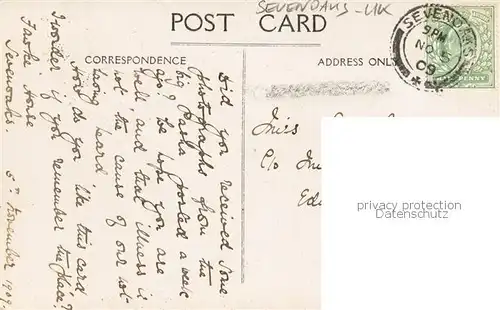 SEVENOAKS - UK
POST CARD
CORRESPONDENCE
ADDRESS ONLY
SEVENOAKS
9 PM
NO 5
09
PENNY
Did you received some
Autographs from the
big Pasha posted a week
ago? We hope you are
well and that illness is
not the cause of our not
having heard.
How do you like this card
I wonder if you remember the place?
House
Sevenoaks. 5th November 1909.
Miss
C/o
privacy protection
Datenschutz